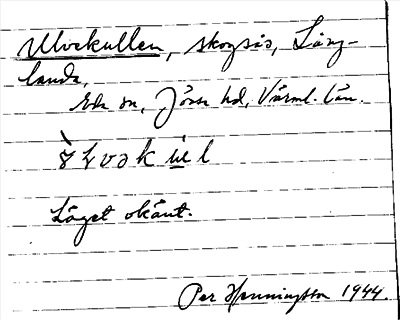 Ulvekullen, skogsås, Läng-
landa,
Eda sn, Jösse hd, Värml. län.
Läget okänt.
Per Henningsson 1944.